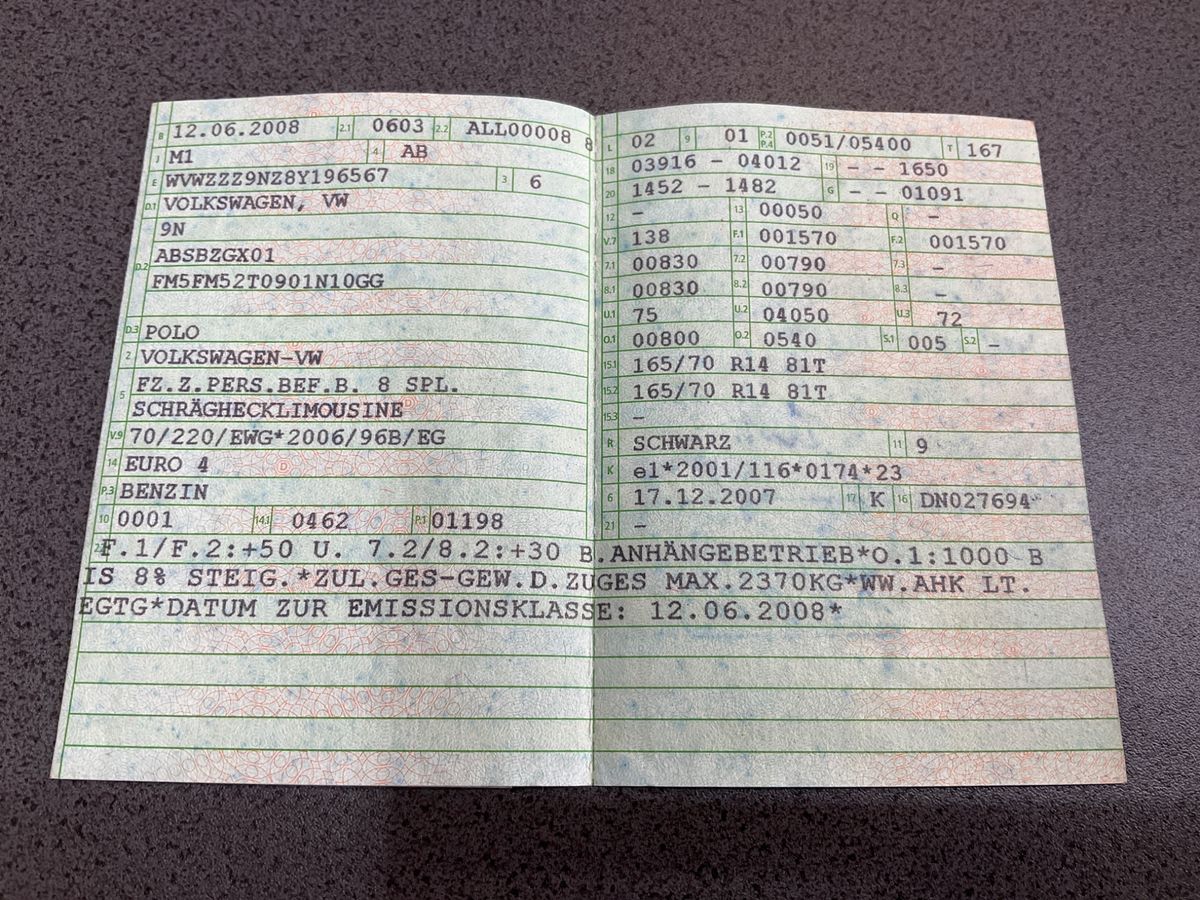 B 12.06.2008 2.1 0603 2.2 ALL00008 8
J M1 4 AB
E WVWZZZ9NZ8Y196567 3 6
D.1 VOLKSWAGEN, VW
9N
D.2 ABSBZGX01
FM5FM52T0901N10GG
D.3 POLO
2 VOLKSWAGEN-VW
5 FZ.Z.PERS.BEF.B. 8 SPL.
SCHRÄGHECKLIMOUSINE
V.9 70/220/EWG*2006/96B/EG
14 EURO 4
P.3 BENZIN
10 0001 14.1 0462 P.1 01198
L 02 9 01 P.2 P.4 0051/05400 T 167
18 03916 - 04012 19 - - 1650
20 1452 - 1482 G - - 01091
12 - 13 00050 Q -
V.7 138 F.1 001570 F.2 001570
7.1 00830 7.2 00790 7.3 -
8.1 00830 8.2 00790 8.3 -
U.1 75 U.2 04050 U.3 72
O.1 00800 O.2 0540 S.1 005 S.2 -
15.1 165/70 R14 81T
15.2 165/70 R14 81T
15.3 -
R SCHWARZ 11 9
K e1*2001/116*0174*23
6 17.12.2007 17 K 16 DN027694
21 -
F.1/F.2:+50 U. 7.2/8.2:+30 B.ANHÄNGEBETRIEB*O.1:1000 B
IS 8% STEIG.*ZUL.GES-GEW.D.ZUGES MAX.2370KG*WW.AHK LT.
EGTG*DATUM ZUR EMISSIONSKLASSE: 12.06.2008*